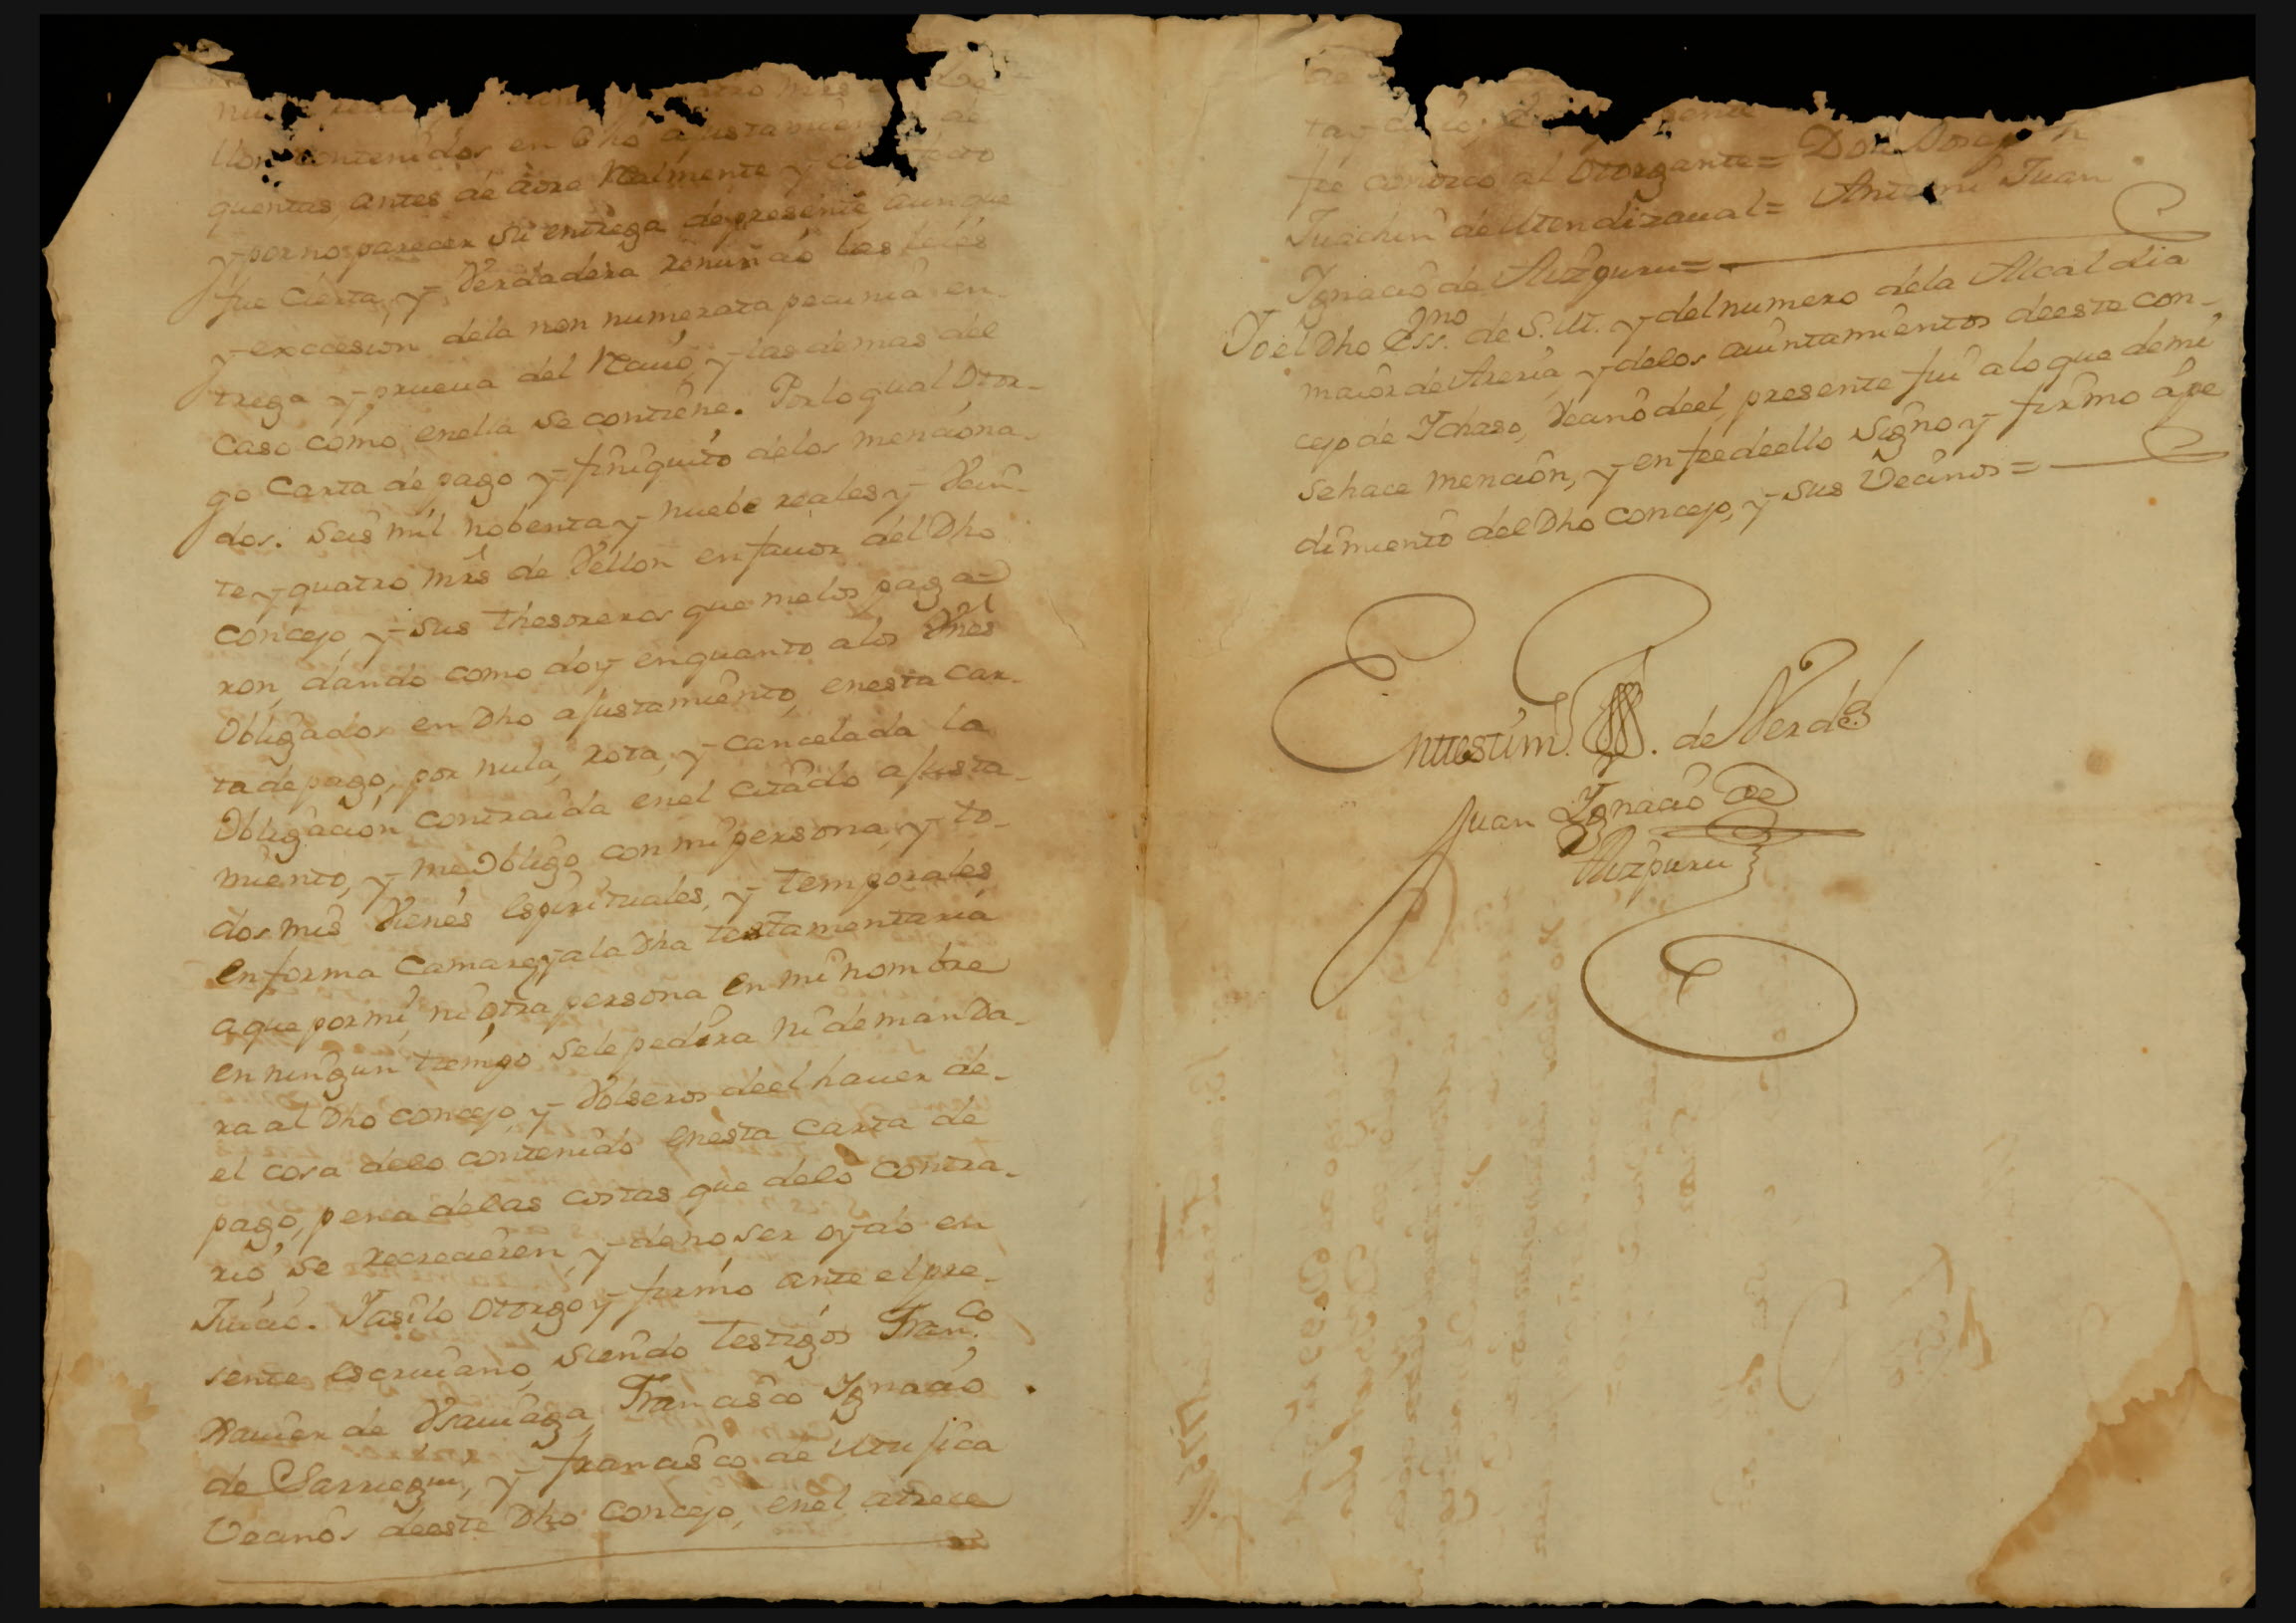 mrs
llon contenidos en Dho ajustamien de
quentas, antes de aora Realmente y con
y por no parecer su entrega de presente, aunque
fue Cierta, y Verdadera renuncio las leies
y excesion dela non numerata pecunia en-
trega y prueua del Reciuo, y las demas del
Caso como enella se contiene. Porloqual Otor-
go Carta de pago y finiquito delos menciona-
dos. Seis mil nobenta y nuebe reales y Vein-
te y quatro mrs de Vellon enfauor del Dho
Concejo, y sus thesoreros que melos paga-
ron, dando como doy enquanto alos
Obligados en Dho ajustamiento, enesta Car-
ta de pago, por nula, rota, y cancelada la
Obligacion contraida enel citado ajusta-
miento, y me Obligo con mi persona, y to-
dos mis Vienes espirituales, y temporales
enforma Camare, yala Dha testamentaria
a que por mi, ni otra persona en mi nombre
en ningun tiempo sele pedira ni demanda-
ra al Dho concejo, y Volseros deel hauer de-
el cosa delo contenido enesta Carta de
pago, pena delas costas que delo contra-
rio se recrecieren, y de no ser oydo en
Juicio. Yasilo Otorgo y firmo ante el pre-
sente escriuano, siendo testigos Franco
Xauier de Vsauiaga, Francisco Ygnacio
de Sarriegui, y francisco de
Vecinos deeste Dho Concejo, enel
de
fee conozco al Otorgante= Don Joseph
Juachin de Atendizaual= Antemi Juan
Ygnacio de Aizpuru=
Yo el Dho Essno de S.M. y del numero dela Alcaldia
maior de Areria, y delos aiuntamientos deeste con-
cejo de Ychaso, Vecino deel, presente fui alo que demi
sehace mencion, y enfee deello signo y firmo ape
dimiento del Dho concejo, y sus Vecinos=
Enttestim. de Verdad
Juan Ygnacio de
Aizpuru